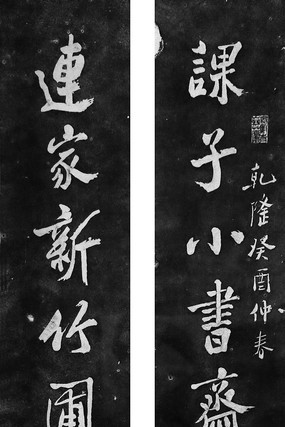 課子小書齋
乾隆癸酉仲春
連家新竹圃